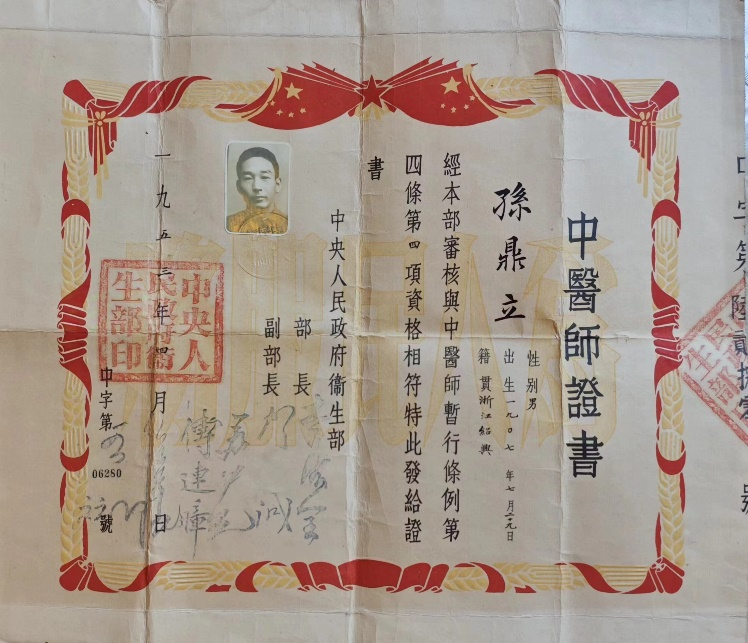 中醫師證書
孫鼎立
性別男
出生一九〇七年七月二九日
籍貫浙江紹興
經本部審核與中醫師暫行條例第
四條第四項資格相符特此發給證
書
中央人民政府衞生部
部長
副部長
傅連暲
一九五三年四月日
中字第
06280
號
中央人民政府衞生部印